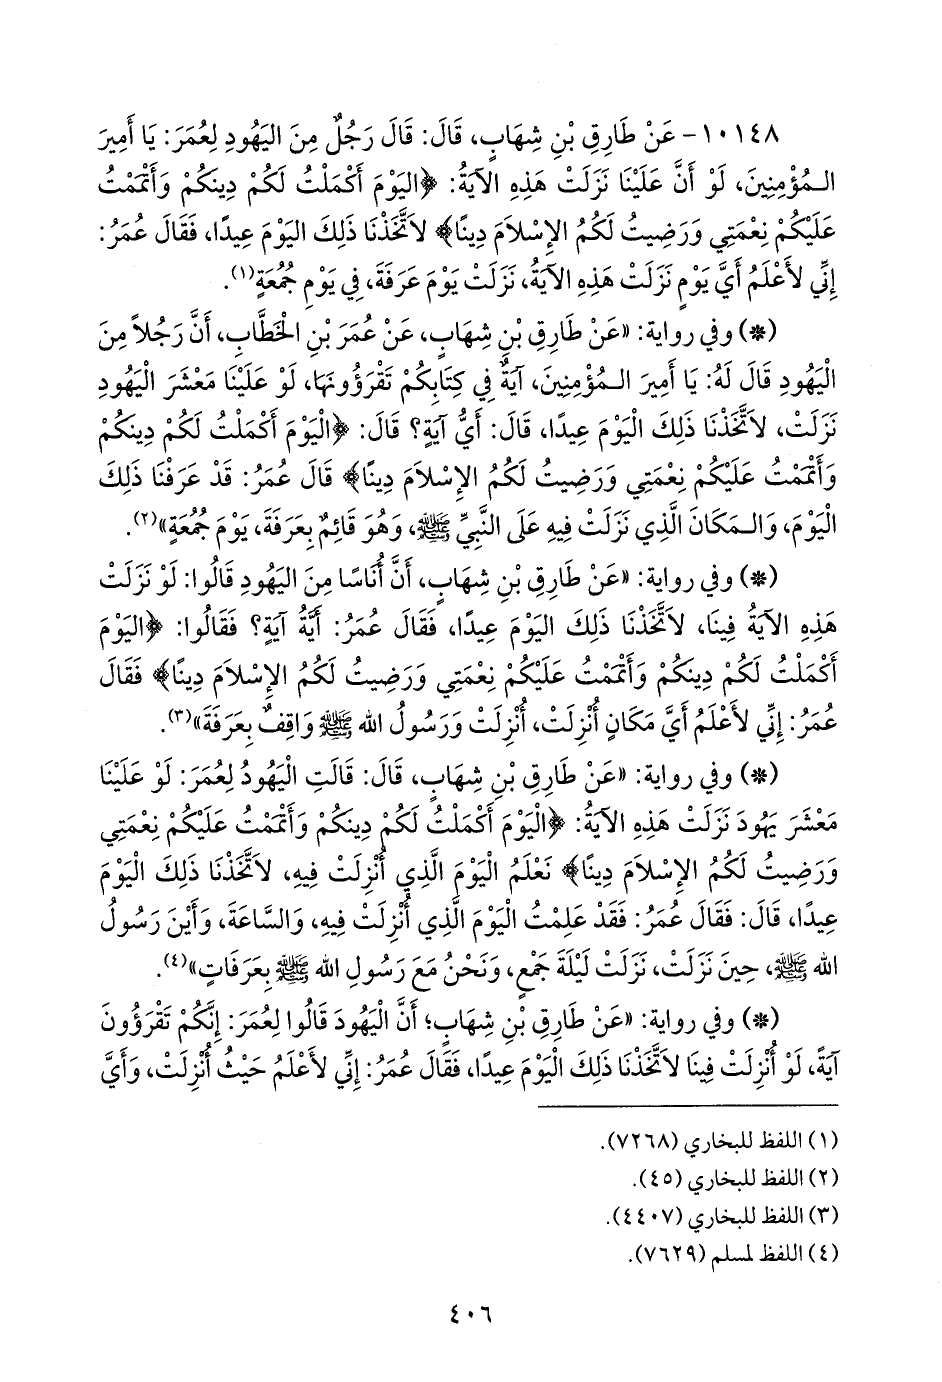 ١٠١٤٨- عَنْ طَارِقِ بْنِ شِهَابٍ، قَالَ: قَالَ رَجُلٌ مِنَ اليَهُودِ لِعُمَرَ: يَا أَمِيرَ
الـمُؤْمِنِينَ، لَوْ أَنَّ عَلَيْنَا نَزَلَتْ هَذِهِ الآيَةُ: ﴿اليَوْمَ أَكْمَلْتُ لَكُمْ دِينَكُمْ وَأَتْمَمْتُ
عَلَيْكُمْ نِعْمَتِي وَرَضِيتُ لَكُمُ الإِسْلاَمَ دِينًا﴾ لاَتَّخَذْنَا ذَلِكَ اليَوْمَ عِيدًا، فَقَالَ عُمَرُ:
إِنِّي لأَعْلَمُ أَيَّ يَوْمٍ نَزَلَتْ هَذِهِ الآيَةُ، نَزَلَتْ يَوْمَ عَرَفَةَ، فِي يَوْمِ جُمُعَةٍ»(١).
(*) وفي رواية: «عَنْ طَارِقِ بْنِ شِهَابٍ، عَنْ عُمَرَ بْنِ الخَطَّابِ، أَنَّ رَجُلاً مِنَ
الْيَهُودِ قَالَ لَهُ: يَا أَمِيرَ الـمُؤْمِنِينَ، آيَةٌ فِي كِتَابِكُمْ تَقْرَؤُونَهَا، لَوْ عَلَيْنَا مَعْشَرَ الْيَهُودِ
نَزَلَتْ، لاَتَّخَذْنَا ذَلِكَ الْيَوْمَ عِيدًا، قَالَ: أَيُّ آيَةٍ؟ قَالَ: ﴿الْيَوْمَ أَكْمَلْتُ لَكُمْ دِينَكُمْ
وَأَتْمَمْتُ عَلَيْكُمْ نِعْمَتِي وَرَضِيتُ لَكُمُ الإِسْلاَمَ دِينًا﴾ قَالَ عُمَرُ: قَدْ عَرَفْنَا ذَلِكَ
الْيَوْمَ، وَالـمَكَانَ الَّذِي نَزَلَتْ فِيهِ عَلَى النَّبِيِّ ﷺ، وَهُوَ قَائِمٌ بِعَرَفَةَ، يَوْمَ جُمُعَةٍ»(٢).
(*) وفي رواية: «عَنْ طَارِقِ بْنِ شِهَابٍ، أَنَّ أُنَاسًا مِنَ اليَهُودِ قَالُوا: لَوْ نَزَلَتْ
هَذِهِ الآيَةُ فِينَا، لاَتَّخَذْنَا ذَلِكَ اليَوْمَ عِيدًا، فَقَالَ عُمَرُ: أَيَّةُ آيَةٍ؟ فَقَالُوا: ﴿اليَوْمَ
أَكْمَلْتُ لَكُمْ دِينَكُمْ وَأَتْمَمْتُ عَلَيْكُمْ نِعْمَتِي وَرَضِيتُ لَكُمُ الإِسْلاَمَ دِينًا﴾ فَقَالَ
عُمَرُ: إِنِّي لأَعْلَمُ أَيَّ مَكَانٍ أُنْزِلَتْ، أُنْزِلَتْ وَرَسُولُ الله ﷺ وَاقِفٌ بِعَرَفَةَ»(٣).
(*) وفي رواية: «عَنْ طَارِقِ بْنِ شِهَابٍ، قَالَ: قَالَتِ الْيَهُودُ لِعُمَرَ: لَوْ عَلَيْنَا
مَعْشَرَ يَهُودَ نَزَلَتْ هَذِهِ الآيَةُ: ﴿الْيَوْمَ أَكْمَلْتُ لَكُمْ دِينَكُمْ وَأَتْمَمْتُ عَلَيْكُمْ نِعْمَتِي
وَرَضِيتُ لَكُمُ الإِسْلاَمَ دِينًا﴾ نَعْلَمُ الْيَوْمَ الَّذِي أُنْزِلَتْ فِيهِ، لاَتَّخَذْنَا ذَلِكَ الْيَوْمَ
عِيدًا، قَالَ: فَقَالَ عُمَرُ: فَقَدْ عَلِمْتُ الْيَوْمَ الَّذِي أُنْزِلَتْ فِيهِ، وَالسَّاعَةَ، وَأَيْنَ رَسُولُ
الله ﷺ، حِينَ نَزَلَتْ، نَزَلَتْ لَيْلَةَ جَمْعٍ، وَنَحْنُ مَعَ رَسُولِ الله ﷺ بِعَرَفَاتٍ»(٤).
(*) وفي رواية: «عَنْ طَارِقِ بْنِ شِهَابٍ؛ أَنَّ الْيَهُودَ قَالُوا لِعُمَرَ: إِنَّكُمْ تَقْرَؤُونَ
آيَةً، لَوْ أُنْزِلَتْ فِينَا لاَتَّخَذْنَا ذَلِكَ الْيَوْمَ عِيدًا، فَقَالَ عُمَرُ: إِنِّي لأَعْلَمُ حَيْثُ أُنْزِلَتْ، وَأَيَّ
(١) اللفظ للبخاري (٧٢٦٨).
(٢) اللفظ للبخاري (٤٥).
(٣) اللفظ للبخاري (٤٤٠٧).
(٤) اللفظ لمسلم (٧٦٢٩).
٤٠٦